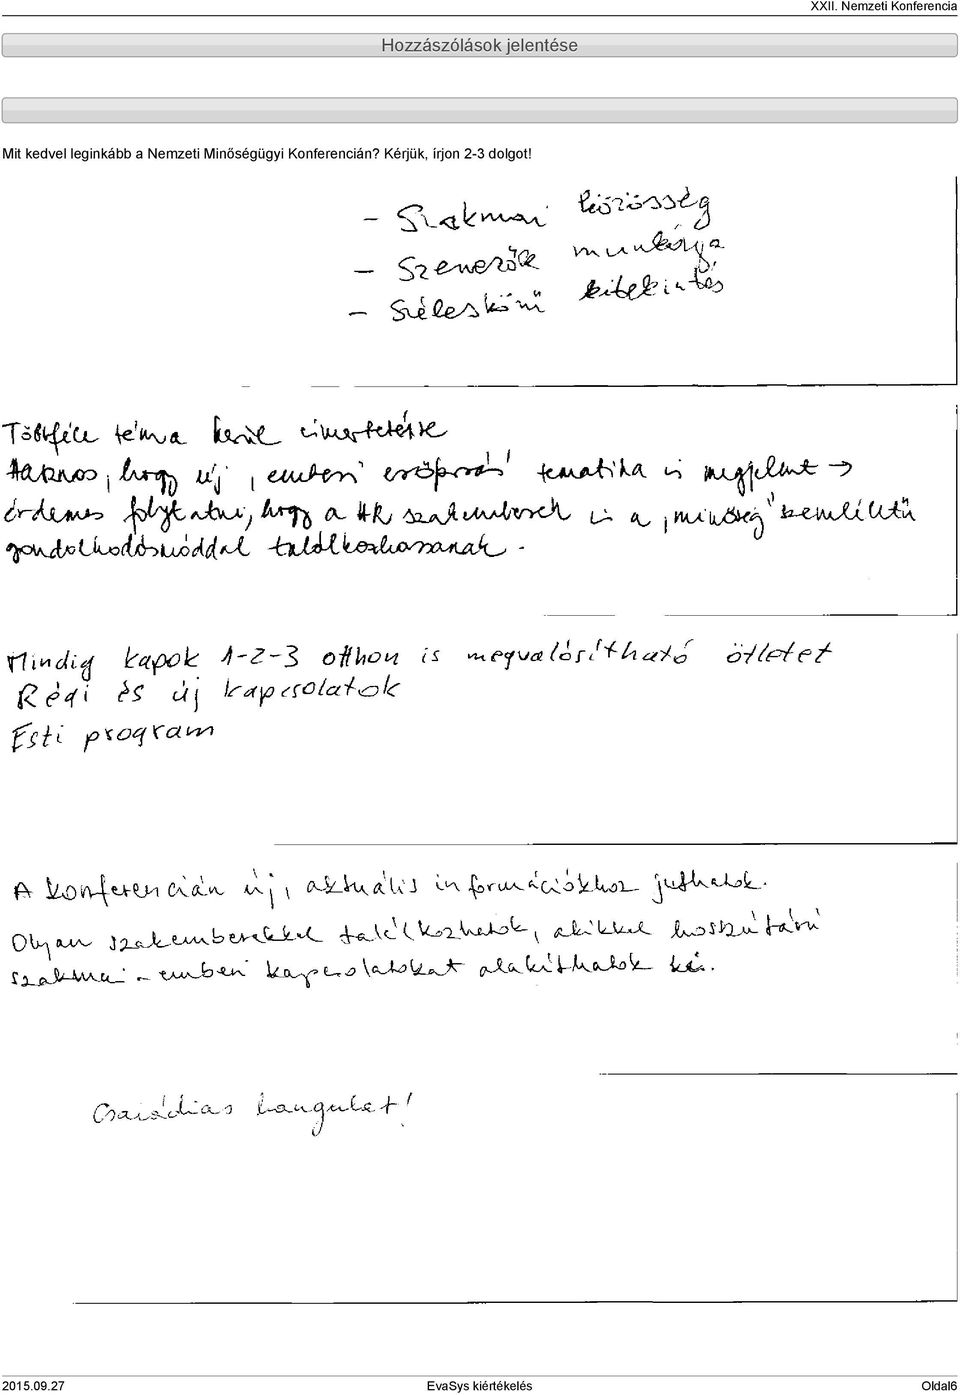 XXII. Nemzeti Konferencia
Hozzászólások jelentése
Mit kedvel leginkább a Nemzeti Minőségügyi Konferencián? Kérjük, írjon 2-3 dolgot!
- Szakmai közösség
- Szervezők munkája
- Széleskörű kitekintés
Többféle téma kerül ismertetésre
Hasznos, hogy új, "emberi erőforrás" tematika is megjelent →
érdemes folytatni, hogy a HR szakemberek is a "minőség" szemléletű
gondolkodásmóddal találkozhassanak.
Mindig kapok 1-2-3 otthon is megvalósítható ötletet
Régi és új kapcsolatok
Esti program
A konferencián új, aktuális információkhoz juthatok.
Olyan szakemberekkel találkozhatok, akikkel hosszútávú
szakmai - emberi kapcsolatokat alakíthatok ki.
Családias hangulat!
2015.09.27
EvaSys kiértékelés
Oldal6